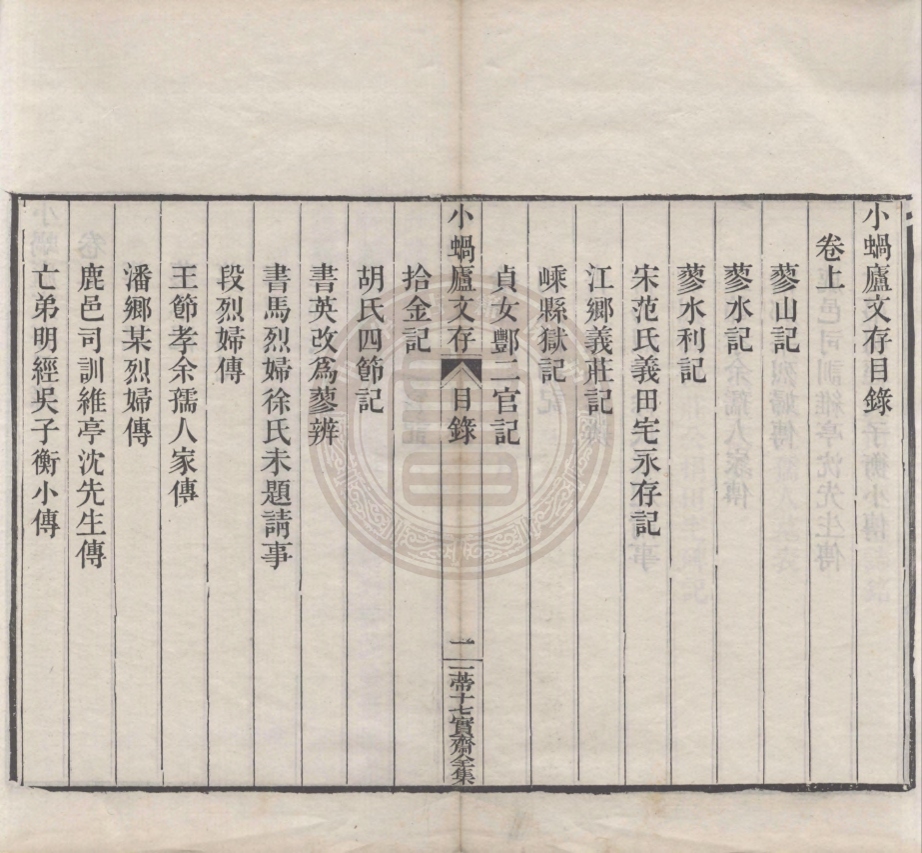 小蝸廬文存目錄
卷上
蓼山記
蓼水記
蓼水利記
宋范氏義田宅永存記
江鄉義莊記
嵊縣獄記
貞女酆二官記
小蝸廬文存
目錄
一
一蒂十七實齋全集
拾金記
胡氏四節記
書英改爲蓼辨
書馬烈婦徐氏未題請事
段烈婦傳
王節孝余孺人家傳
潘鄉某烈婦傳
鹿邑司訓維亭沈先生傳
亡弟明經吳子衡小傳